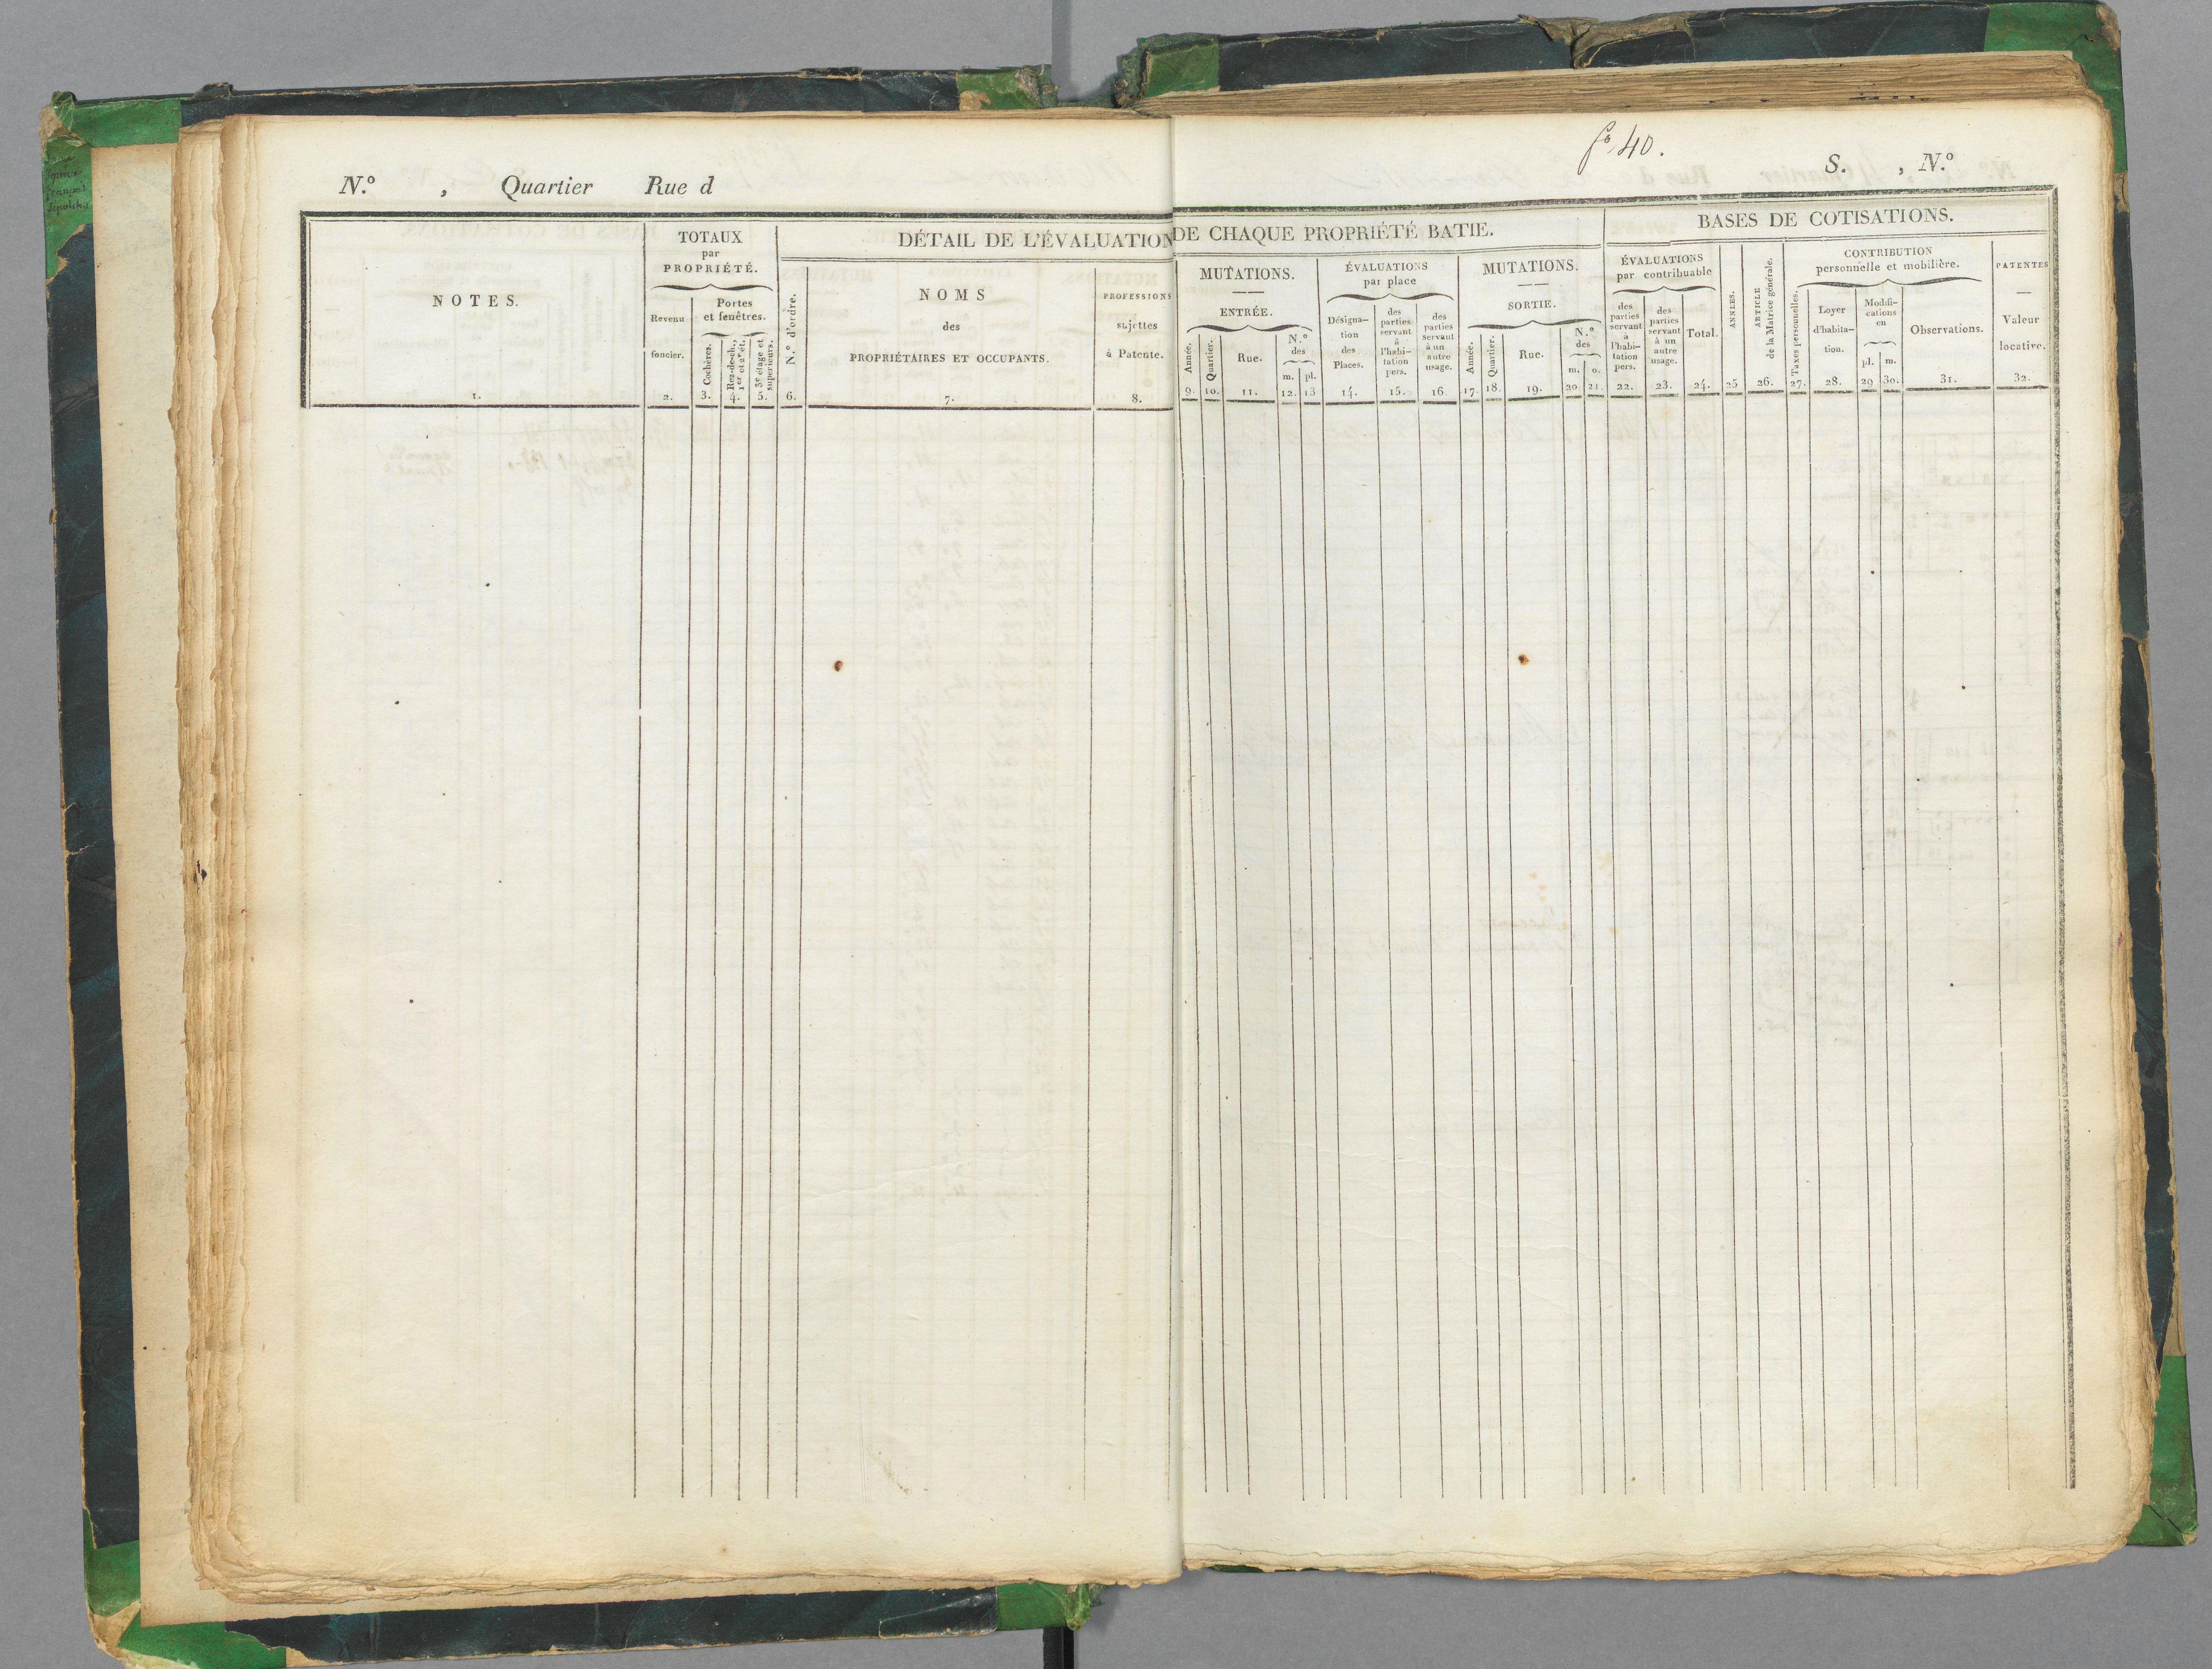 fo 40.
N.o , Quartier Rue d S. , N.o
TOTAUX
par
PROPRIÉTÉ.
DÉTAIL DE L'ÉVALUATION DE CHAQUE PROPRIÉTÉ BATIE.
BASES DE COTISATIONS.
NOTES.
1.
Revenu
foncier.
2.
Portes
et fenêtres.
Cochères.
3.
Rez-de-ch.,
1er et 2e ét.
4.
3e étage et
supérieurs.
5.
N.o d'ordre.
6.
NOMS
des
PROPRIÉTAIRES ET OCCUPANTS.
7.
PROFESSIONS
sujettes
à Patente.
8.
MUTATIONS.
ENTRÉE.
Année.
9.
Quartier.
10.
Rue.
11.
N.o
des
m. pl.
12. 13
ÉVALUATIONS
par place
Désigna-
tion
des
Places.
14.
des
parties
servant
à
l'habi-
tation
pers.
15.
des
parties
servant
à un
autre
usage.
16.
MUTATIONS.
SORTIE.
Année.
17.
Quartier.
18.
Rue.
19.
N.o
des
m. o.
20 21.
ÉVALUATIONS
par contribuable
des
parties
servant
à
l'habi-
tation
pers.
22.
des
parties
servant
à un
autre
usage.
23.
Total.
24.
ANNÉES.
25
ARTICLE
de la Matrice générale.
26.
CONTRIBUTION
personnelle et mobilière.
Taxes personnelles.
27.
Loyer
d'habita-
tion.
28.
Modifi-
cations
en
pl. m.
29 30.
Observations.
31.
PATENTES
Valeur
locative.
32.